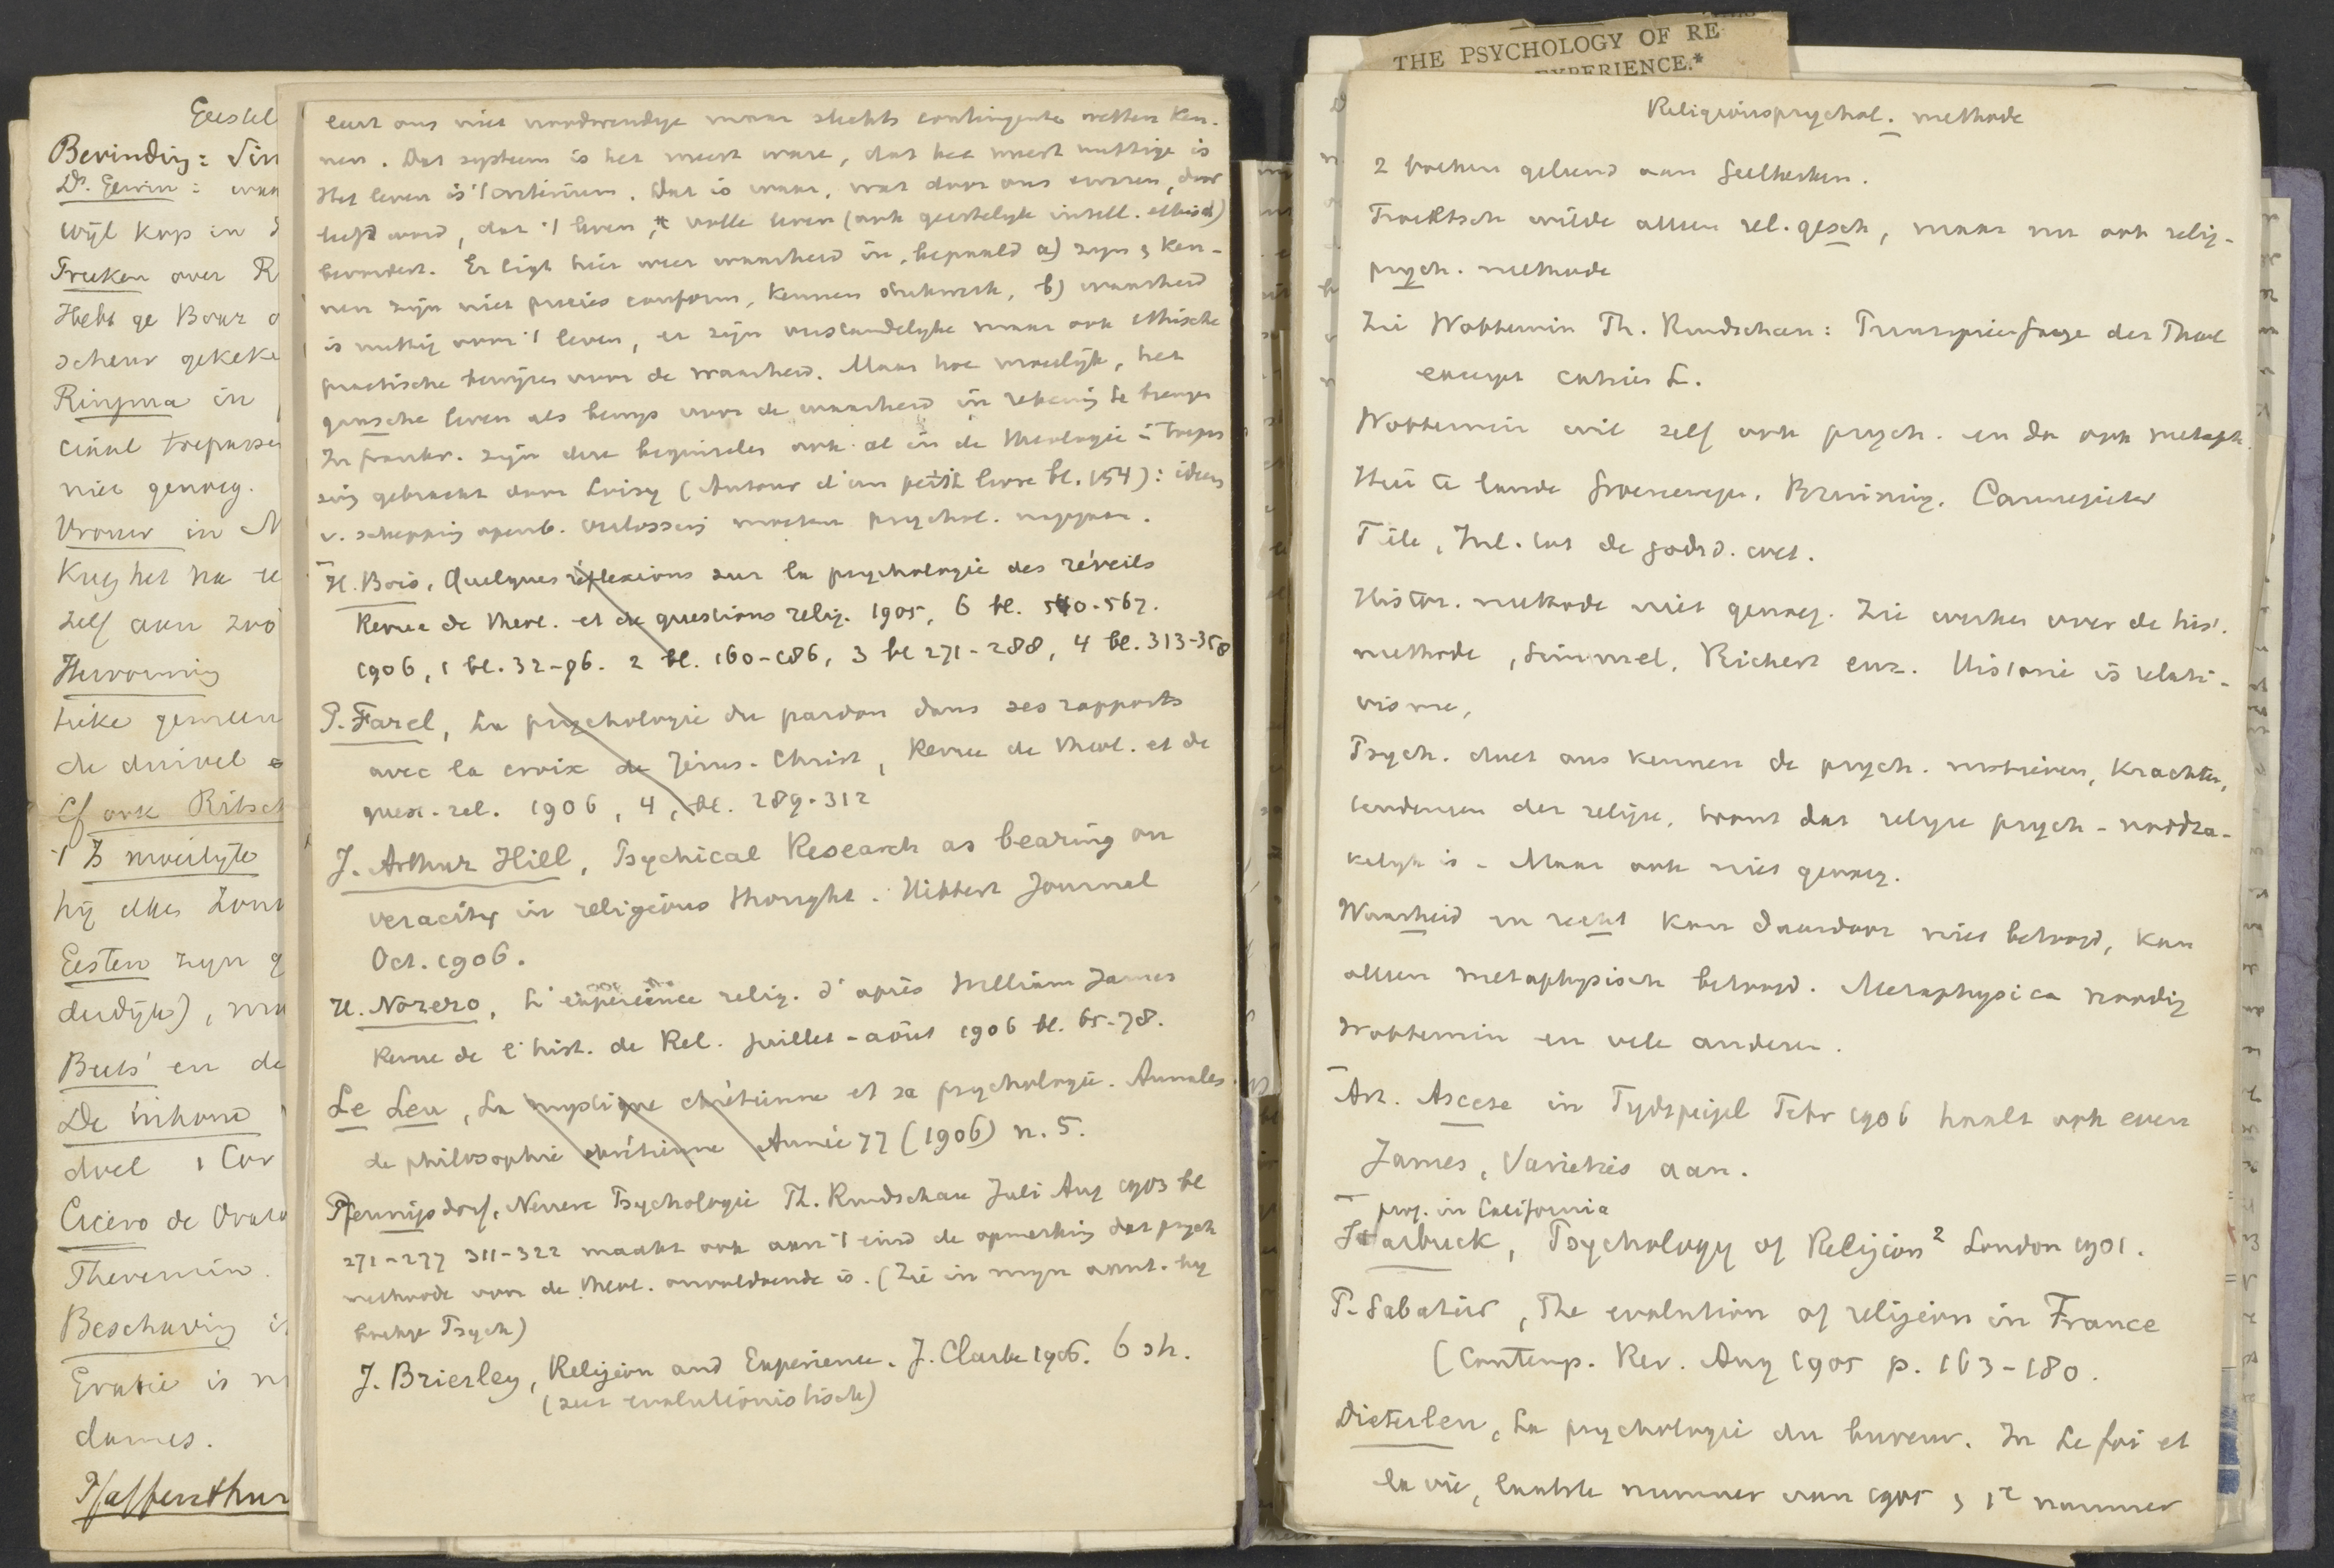 Geestel
Bevinding: Sin
Ds. Gewin:
wijl kop in
Treeken over R
Hebt ge Baur
scheur gekeke
Ringma in
niet genoeg.
Vrouw in N
Kreg het na
zelf aan
Hervorming
tieke gemeen
de duivel
Cf ook Ritsch
't Is moeilijk
hij alles
Eesten zijn g
Beets' en de
De inhoud
doel 1 Cor
Cicero de Orato
Theremin
Beschaving
dames.
Pfaffenthum
leert ons niet noodwendige maar slechts contingente wetten ken-
nen. Dat systeem is het meest ware, dat het meest nuttige is
Het leven is 't critérium. Dat is waar, wat door ons ervaren, door
leefd word, dat 't leven, 't volle leven (ook geestelijk intell. ethisch)
bevordert. Er ligt hier weer waarheid in, bepaald a) zijn & ken-
nen zijn niet precies conform, kennen b) waarheid
is nuttig voor 't leven, er zijn verstandelijke maar ook ethische
practische bewijzen voor de waarheid. Maar hoe moeilijk, het
gansche leven als bewijs voor de waarheid in rekening te brengen
In Frankr. zijn deze beginselen ook al in de theologie in toepas
sing gebracht door Loisy (Autour d'un petit livre bl. 154): ideen
v. schepping openb. verlossing moeten psychol. nagegaan.
H. Bois, Quelques réflexions sur la psychologie des réveils
Revue de theol. et de questions relig. 1905, 6 bl. 540-567.
1906, 1 bl. 32-96. 2 bl. 160-186, 3 bl 271-288, 4 bl. 313-358
P. Farel, La psychologie du pardon dans ses rapports
avec la croix de Jésus-Christ, Revue de theol. et de
quest. rel. 1906, 4, bl. 289-312
J. Arthur Hill, Psychical Research as bearing on
veracity in religious thought. Hibbert Journal
Oct. 1906.
H. Norero, L'expérience relig. d'après William James
Revue de l'hist. de Rel. juillet-août 1906 bl. 65-78.
Le Leu, La mystique chrétienne et sa psychologie. Annales
de philosophie chrétienne Année 77 (1906) n. 5.
Pfennigsdorf, Neuere Psychologie Th. Rundschau Juli Aug 1903 bl
271-277 311-322 maakt ook aan 't eind de opmerking dat psych
methode voor de theol. onvoldoende is. (Zie in mijn aant. bij
Psych)
J. Brierley, Religion and Experience. J. Clarke 1906. 6 sh.
(zeer evolutionistisch)
THE PSYCHOLOGY OF RE
EXPERIENCE.*
Religionspsychol. methode
2 boeken geleend aan Geelkerken.
Troeltsch wilde alleen rel. gesch, maar nu ook relig-
psych. methode
Zie Wobbermin Th. Rundschau: der Theol
excerpt cahier L.
Wobbermin wil zelf ook psych. en dan ook metaph.
Hier te lande Groenewegen, Bruining, Cannegieter
Tiele, Inl. tot de godsd. wet.
Histor. methode niet genoeg. Zie werken over de hist.
methode, Simmel, Rickert enz. Historie is relati-
visme,
Psych. doet ons kennen de psych. motieven, krachten,
tendenzen der religie, toont dat religie psych-noodza-
kelijk is - Maar ook niet genoeg.
Waarheid en recht kan daardoor niet betoogd, kan
alleen metaphysisch betoogd. Metaphysica noodig
Wobbermin en vele anderen.
Art. Ascese in Tijdspiegel Febr 1906 haalt ook even
James, Varieties aan.
prof. in California
Starbuck, Psychology of Religion 2 London 1901.
P. Sabatier, The evolution of religion in France
(Contemp. Rev. Aug 1905 p. 163-180.
Dieterlen, La psychologie du buveur. In Le foi et
la vie, laatste nummer van 1905 & 1e nummer